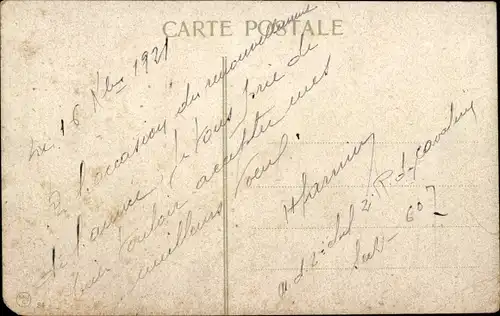 CARTE POSTALE
Le 16 Xbre 1921
A l'occasion du renouvellement
de l'année je vous prie de
bien vouloir accepter mes
meilleurs vœux.
2e R. d.
607